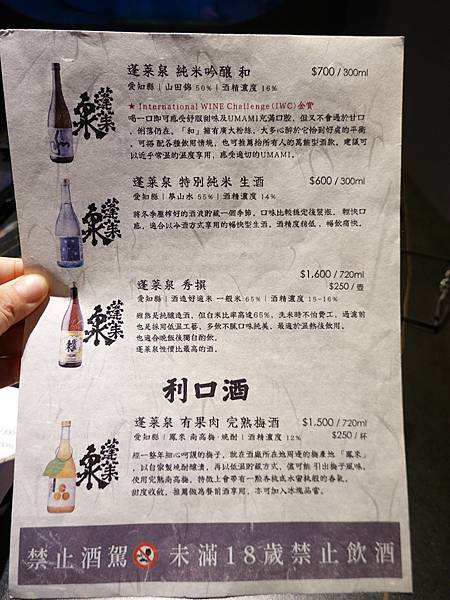 蓬萊泉 純米吟釀 和 $700 / 300ml
愛知縣 | 山田錦 50% | 酒精濃度 16%
★ International WINE Challenge (IWC)金賞
喝一口即可感受舒服甜味及UMAMI充滿口腔，但又不會過於甘口
，俐落仍在。「和」擁有廣大粉絲，大多心醉於它恰到好處的平衡
，可搭配各種飲用情境，也可推薦給所有人的萬能型酒款。建議可
以近乎常溫的溫度享用，感受適切的UMAMI。
蓬萊泉
蓬萊泉 特別純米 生酒 $600 / 300ml
愛知縣 | 夢山水 55% | 酒精濃度 14%
將冬季壓榨好的酒液貯藏一個季節，口味比較穩定後裝瓶。輕快口
感，適合以冷酒方式享用的暢快型生酒。酒精度稍低，暢飲痛快。
蓬萊泉
蓬萊泉 秀撰 $1,600 / 720ml
愛知縣 | 酒造好適米 一般米 65% | 酒精濃度 15-16% $250 / 壺
雖然是純釀造酒，但白米比率高達65%，洗米時不怕費工，過濾前
也是採用低溫工藝，多飲不膩口味純美，最適於溫熱後飲用。
也適合晚飯後獨自酌飲。
蓬萊泉性價比最高的酒。
蓬萊泉
利口酒
蓬萊泉 有果肉 完熟梅酒 $1,500 / 720ml
愛知縣 | 鳳來 南高梅·燒酎 | 酒精濃度 12% $250 / 杯
經一整年細心呵護的梅子，就在酒廠所在地周邊的梅產地「鳳來」
，以自家製燒酎釀漬，再以低溫貯藏方式，儘可能 引出梅子風味。
使用完熟南高梅，特徵上會帶有一點杏桃或水蜜桃般的香氣。
甜度收斂，推薦做為餐前酒享用，亦可加入冰塊品嘗。
蓬萊泉
禁止酒駕 未滿18歲禁止飲酒